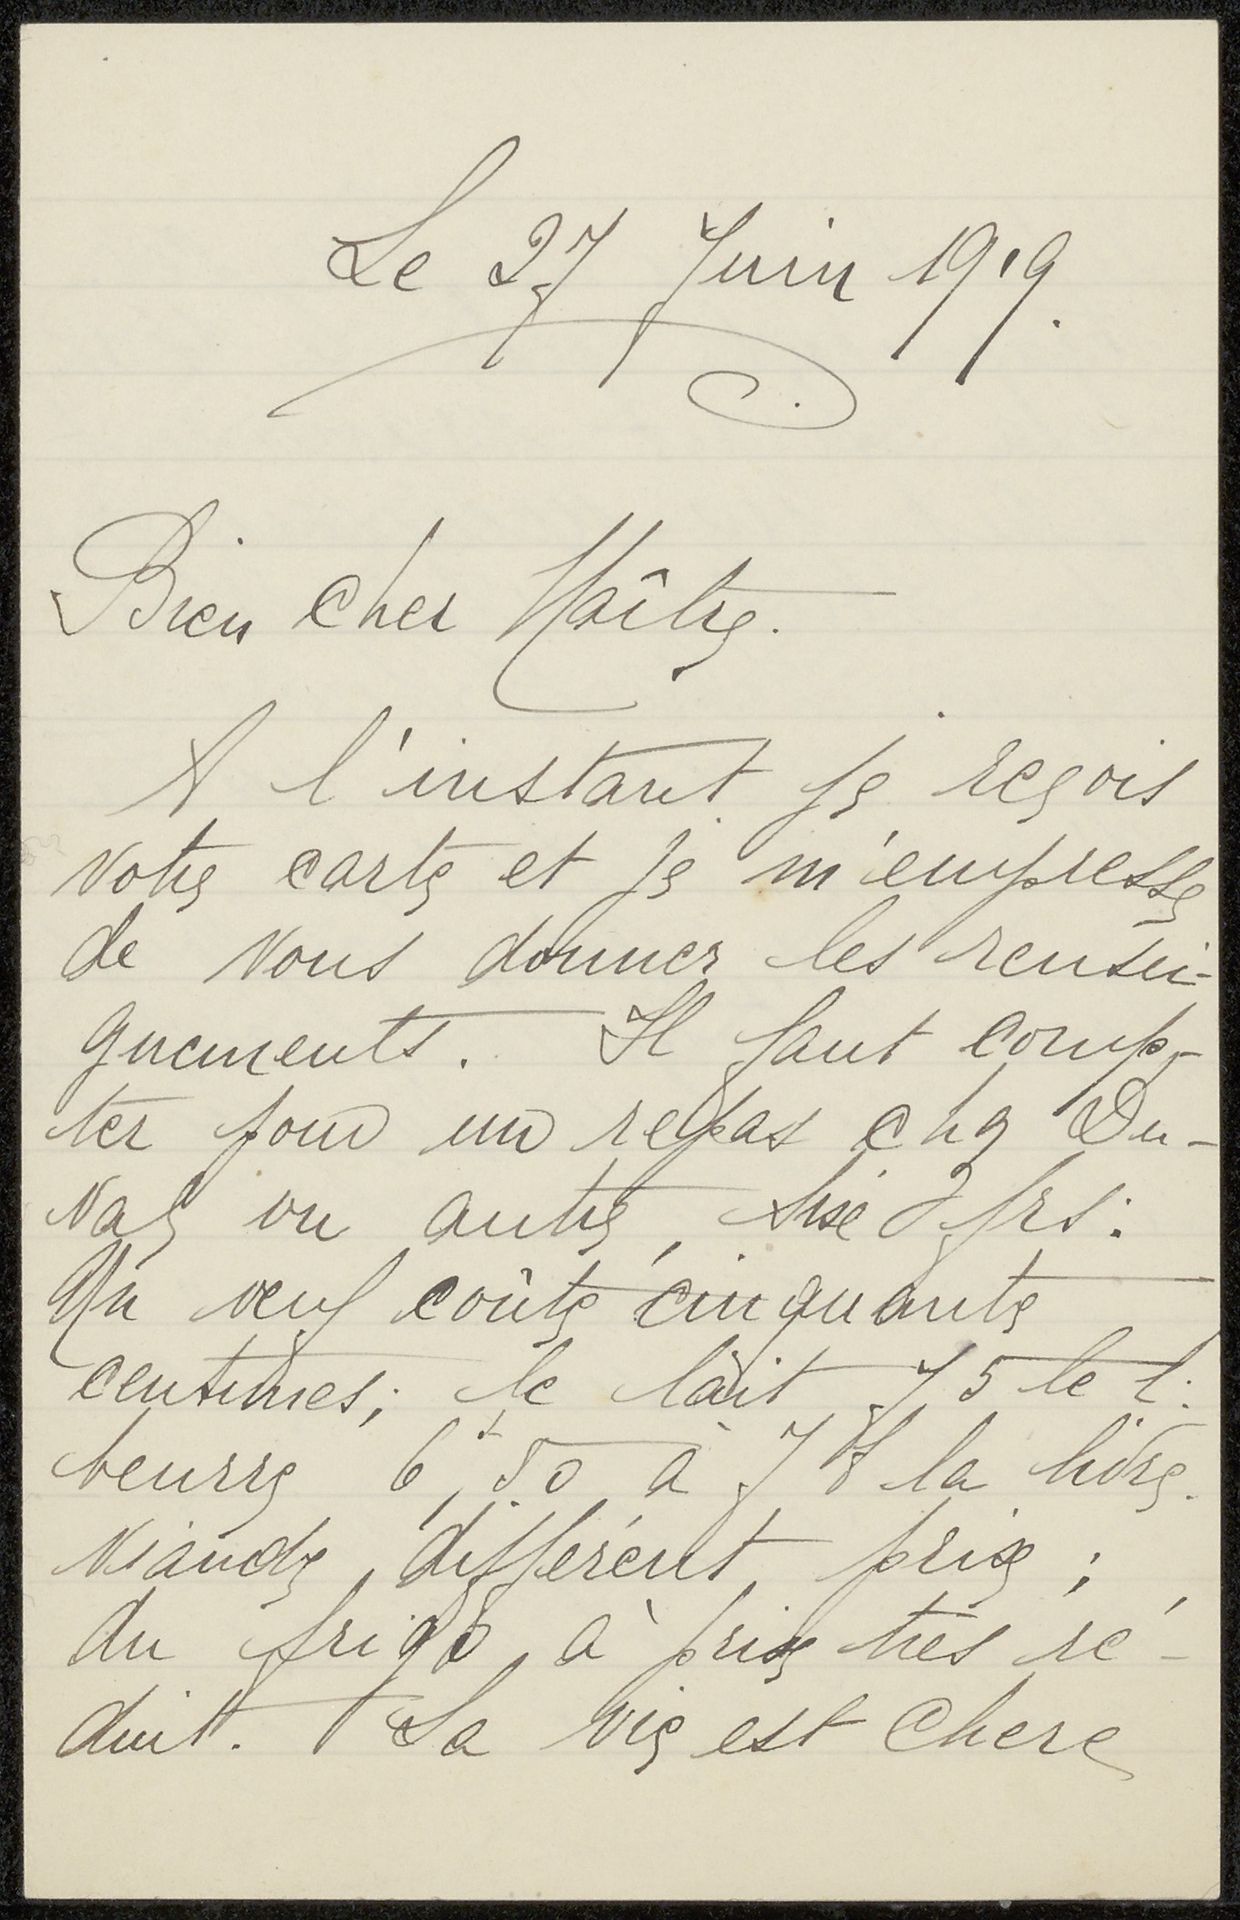 Le 27 Juin 1919.
Bien cher Maître.
A l'instant je reçois
votre carte et je m'empresse
de vous donner les rensei-
gnements. Il faut comp-
ter pour un repas chz Du-
val ou autre, fixe 7 frs.
Un œuf coûte cinquante
centimes; le lait 75 le l.
beurre 6f,50 à 7f la livre.
Viande, différent prix;
du frigo à prix très ré-
duit. La vie est chere